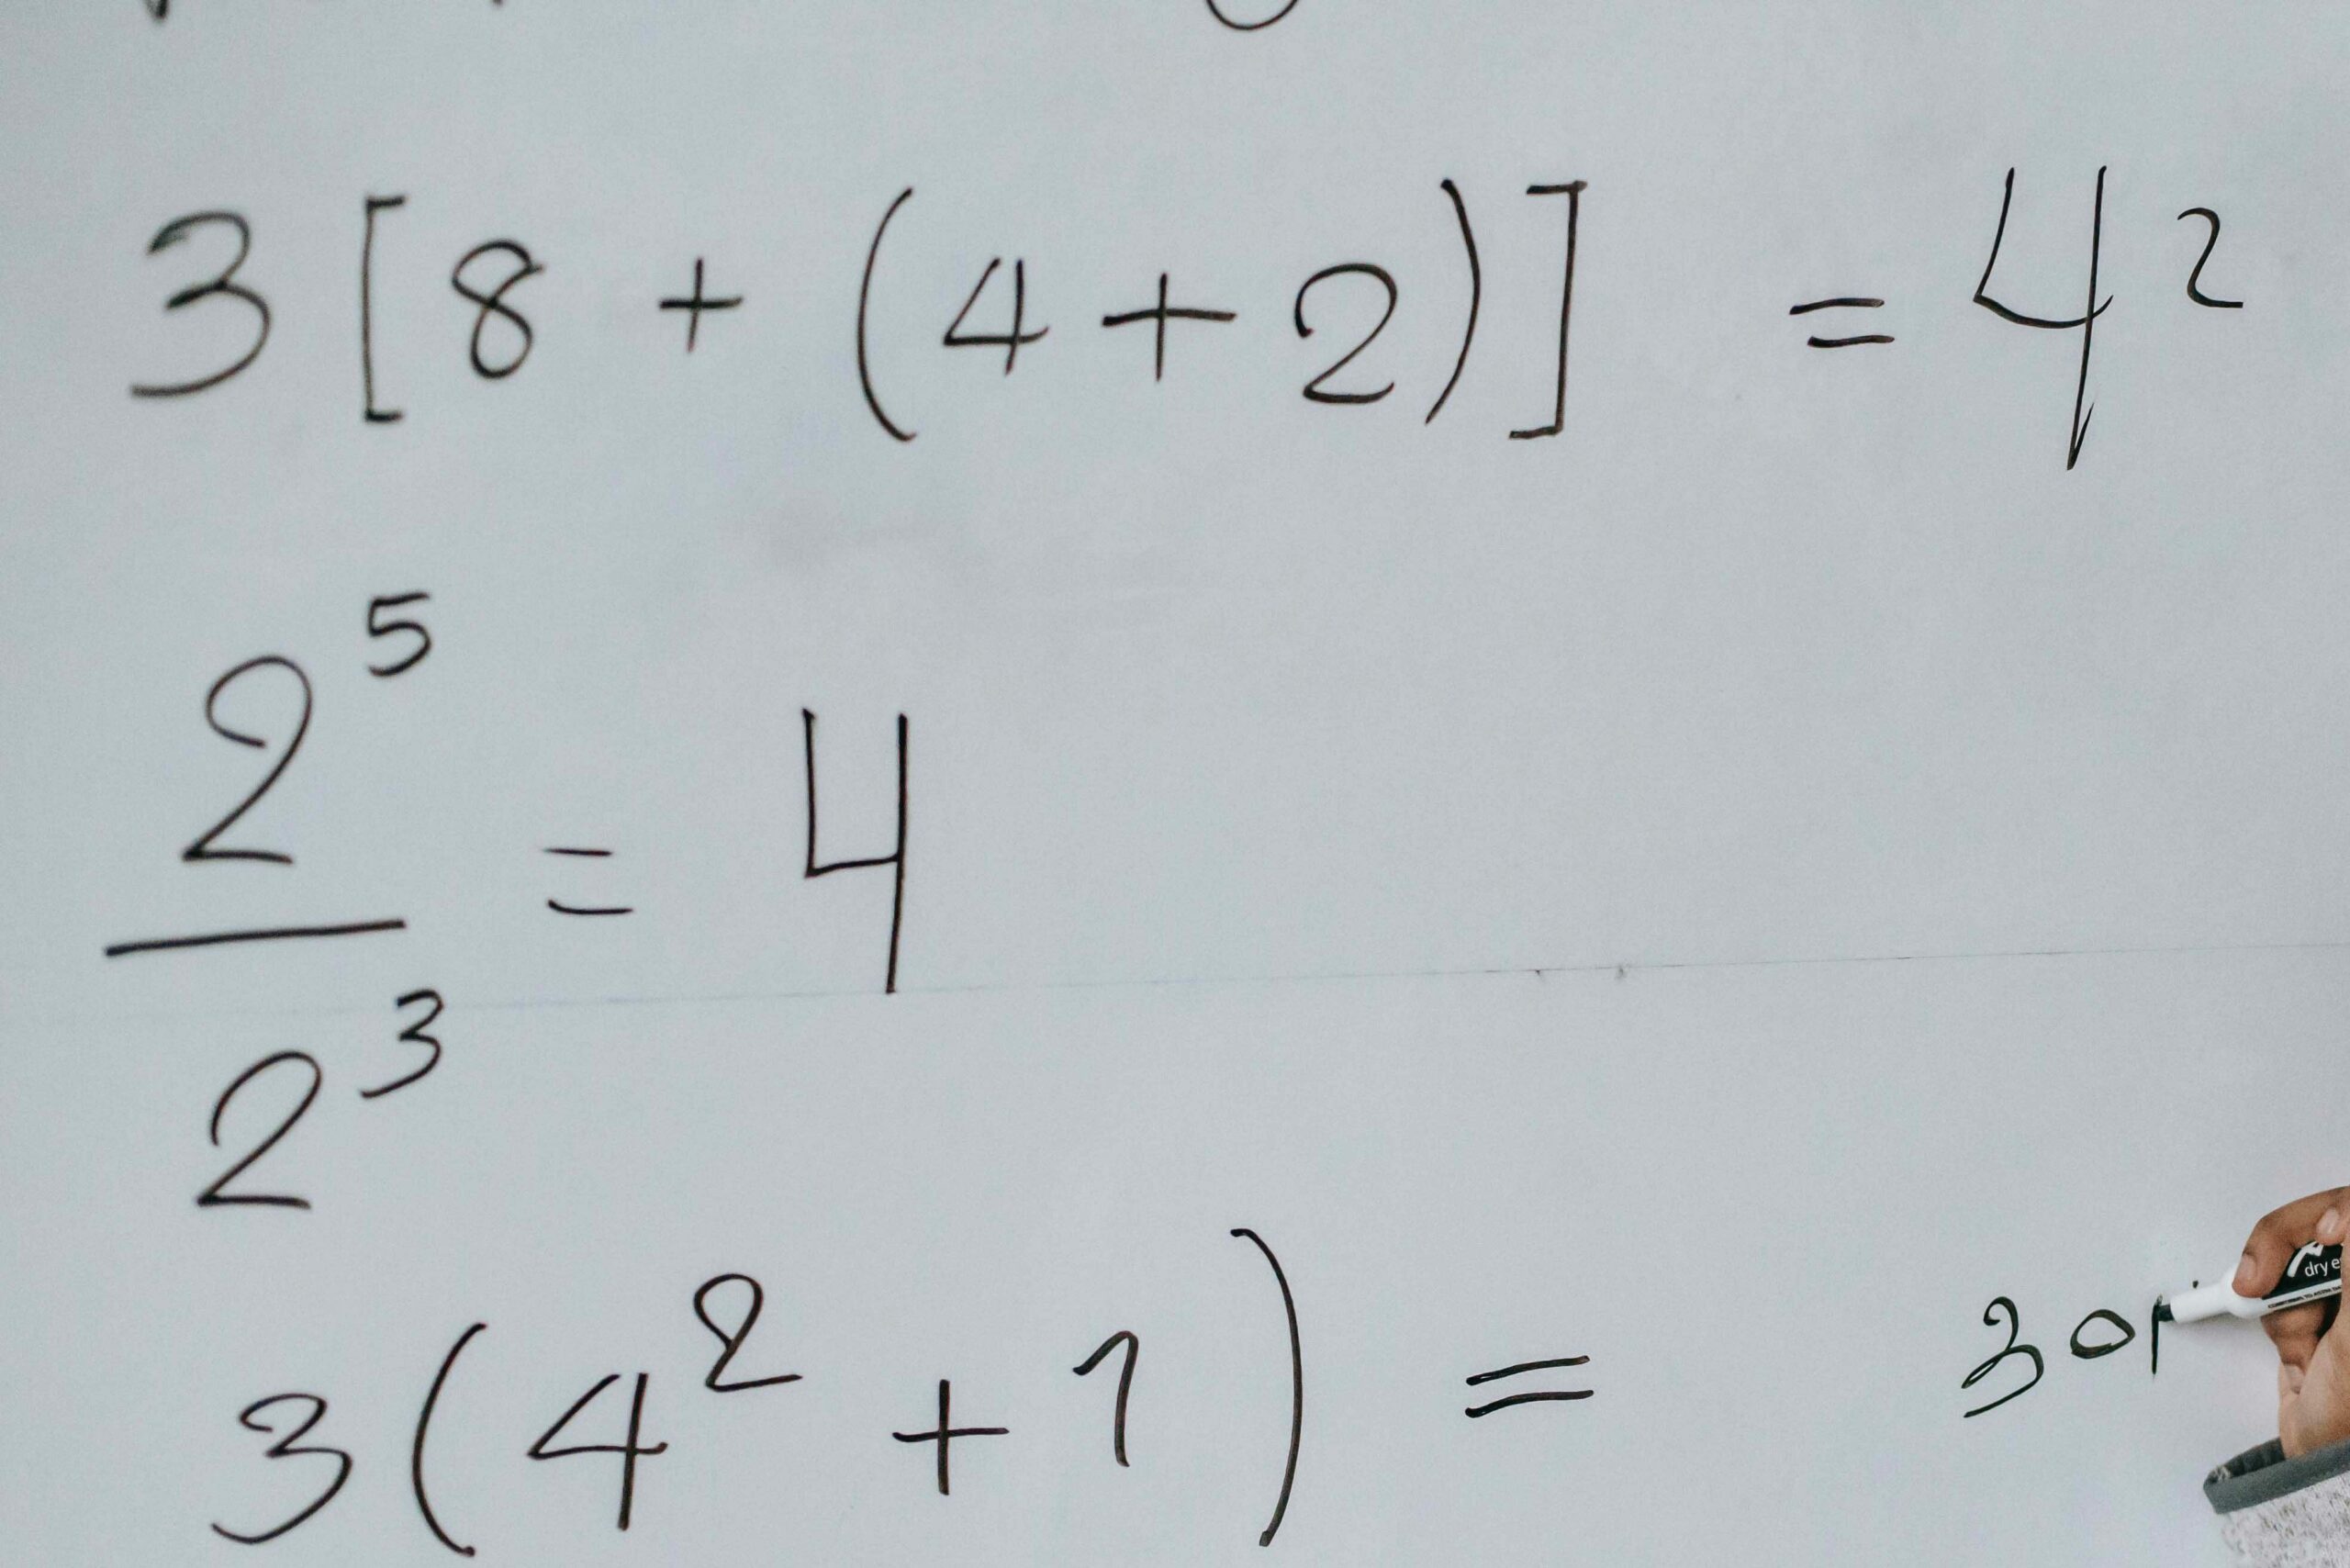 3 [ 8 + ( 4 + 2 ) ] = 4 2
2⁵
—
2³
= 4
3 ( 4² + 1 ) = 301
dry e